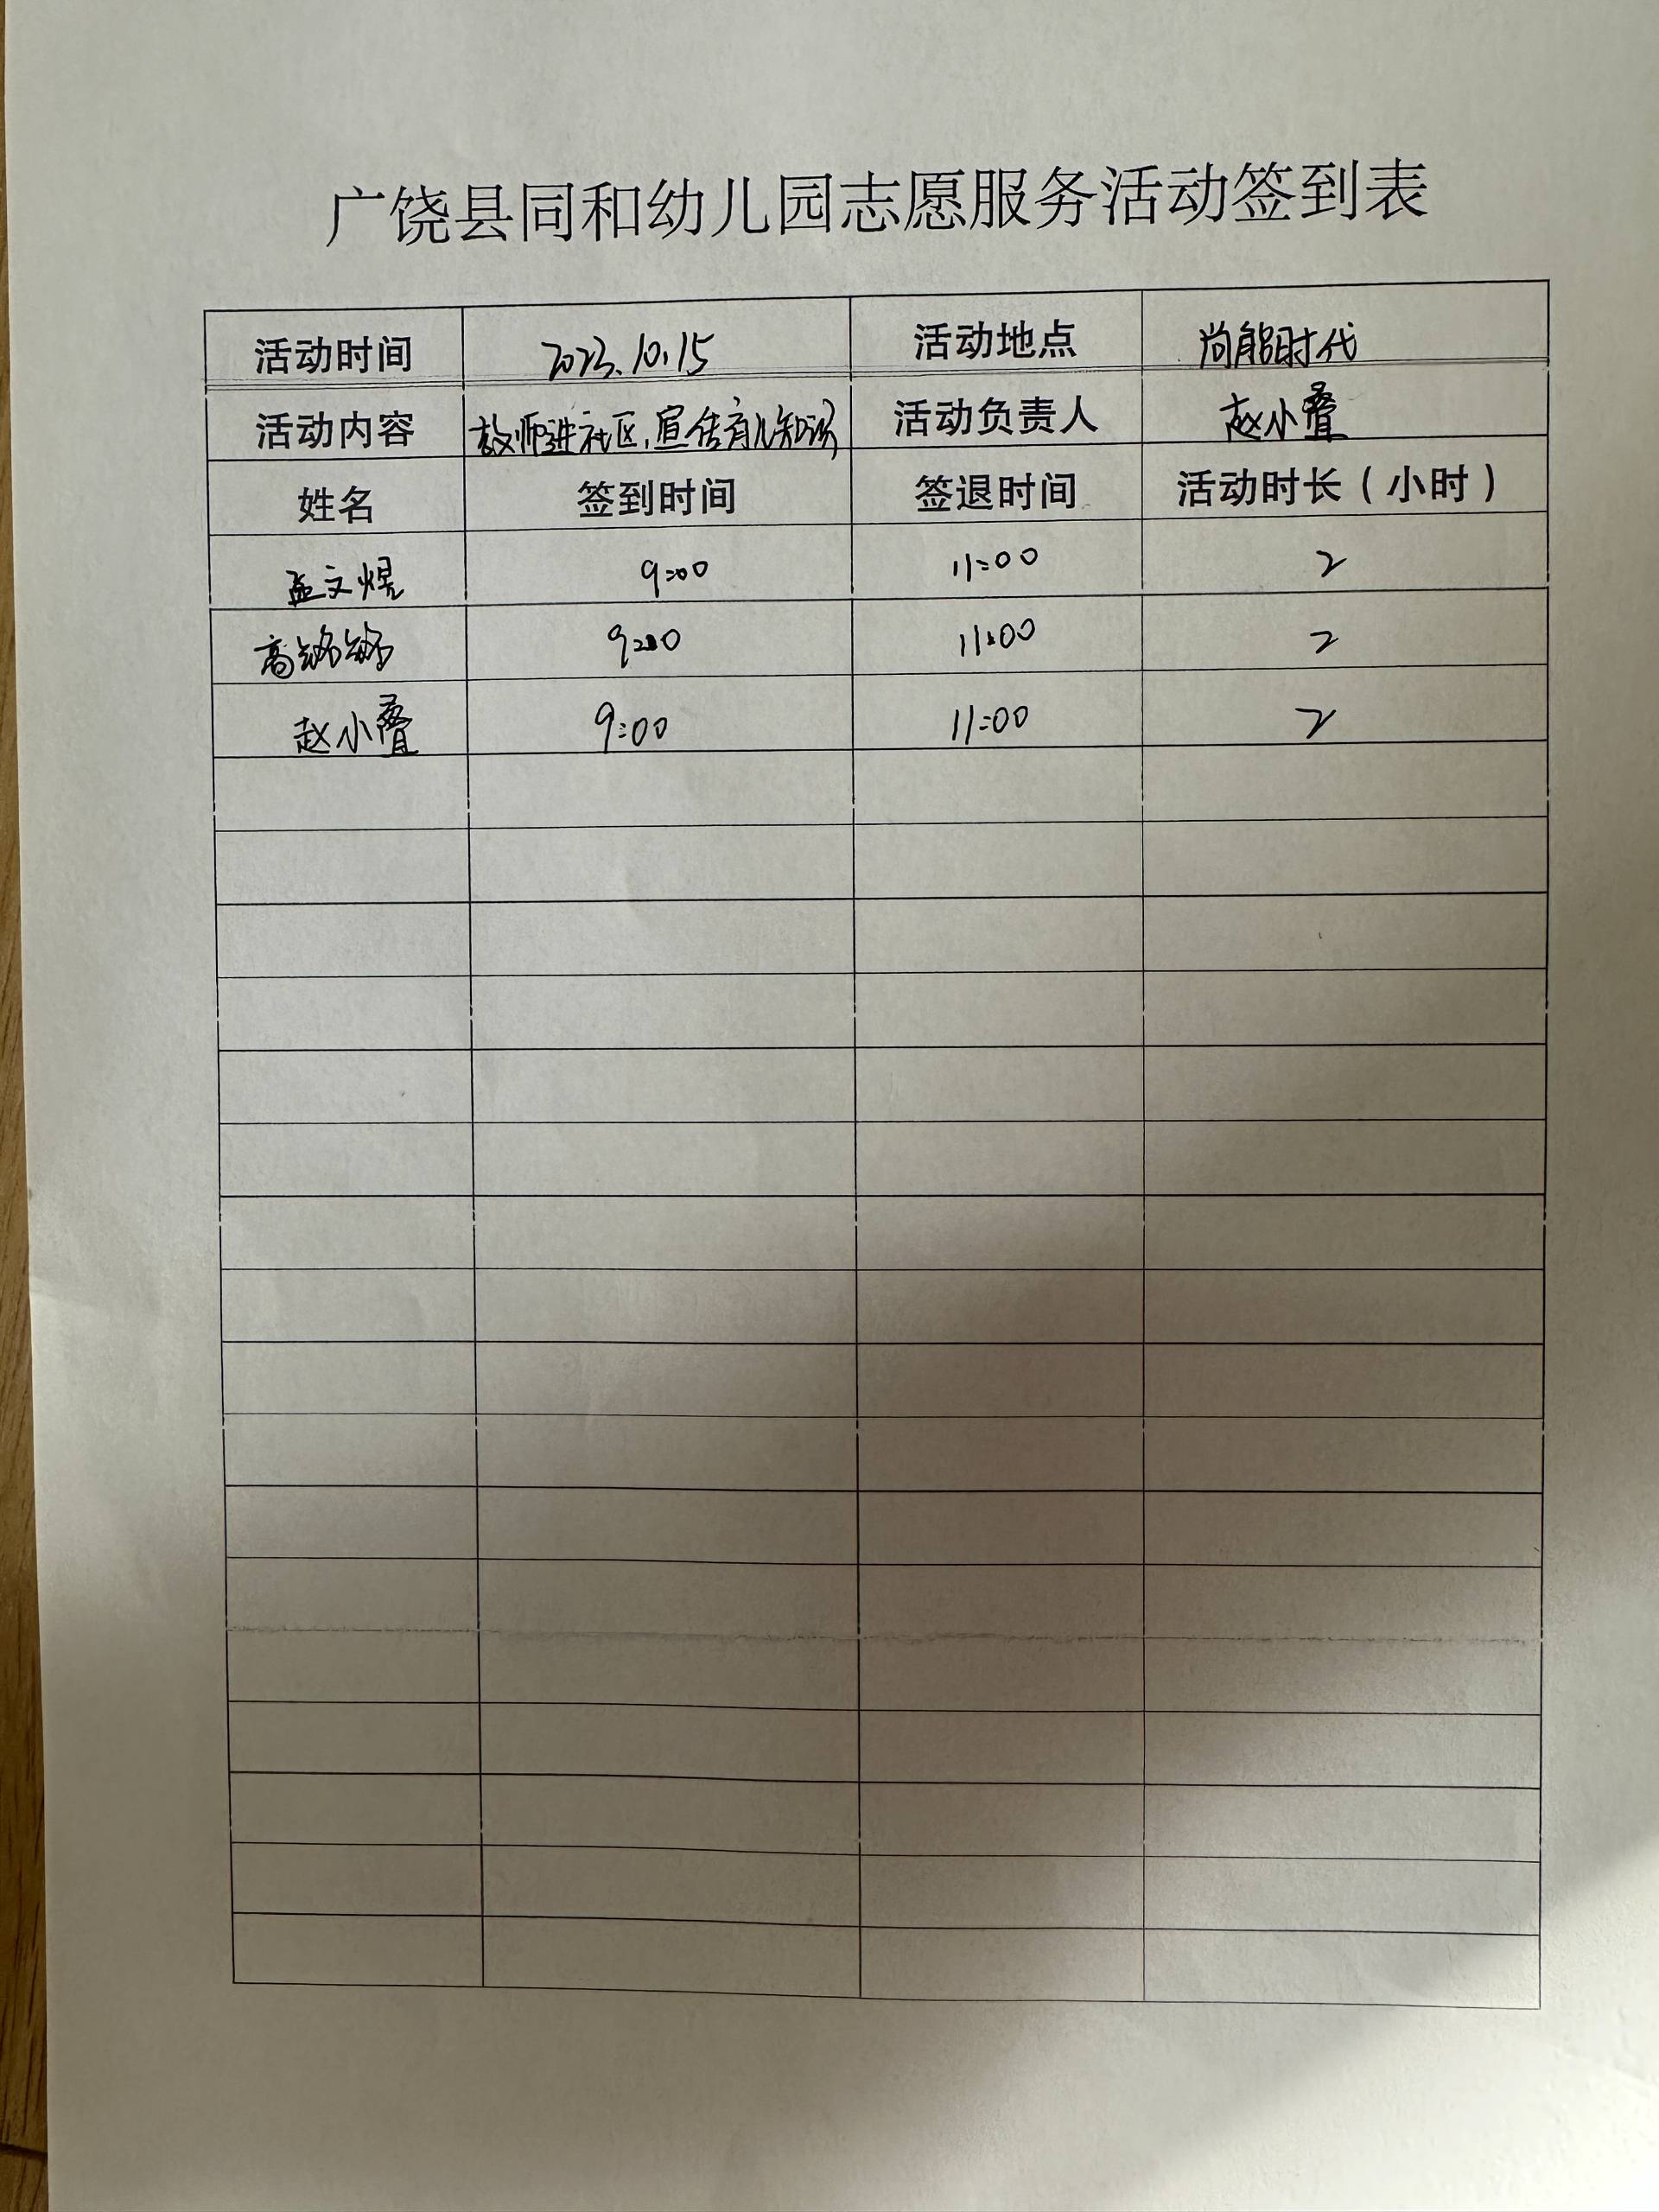 广饶县同和幼儿园志愿服务活动签到表
活动时间 2023.10.15 活动地点 尚能时代
活动内容 教师进社区,宣传育儿知识 活动负责人 赵小叠
姓名 签到时间 签退时间 活动时长(小时)
孟文煜 9:00 11:00 2
高 9:00 11:00 2
赵小叠 9:00 11:00 2